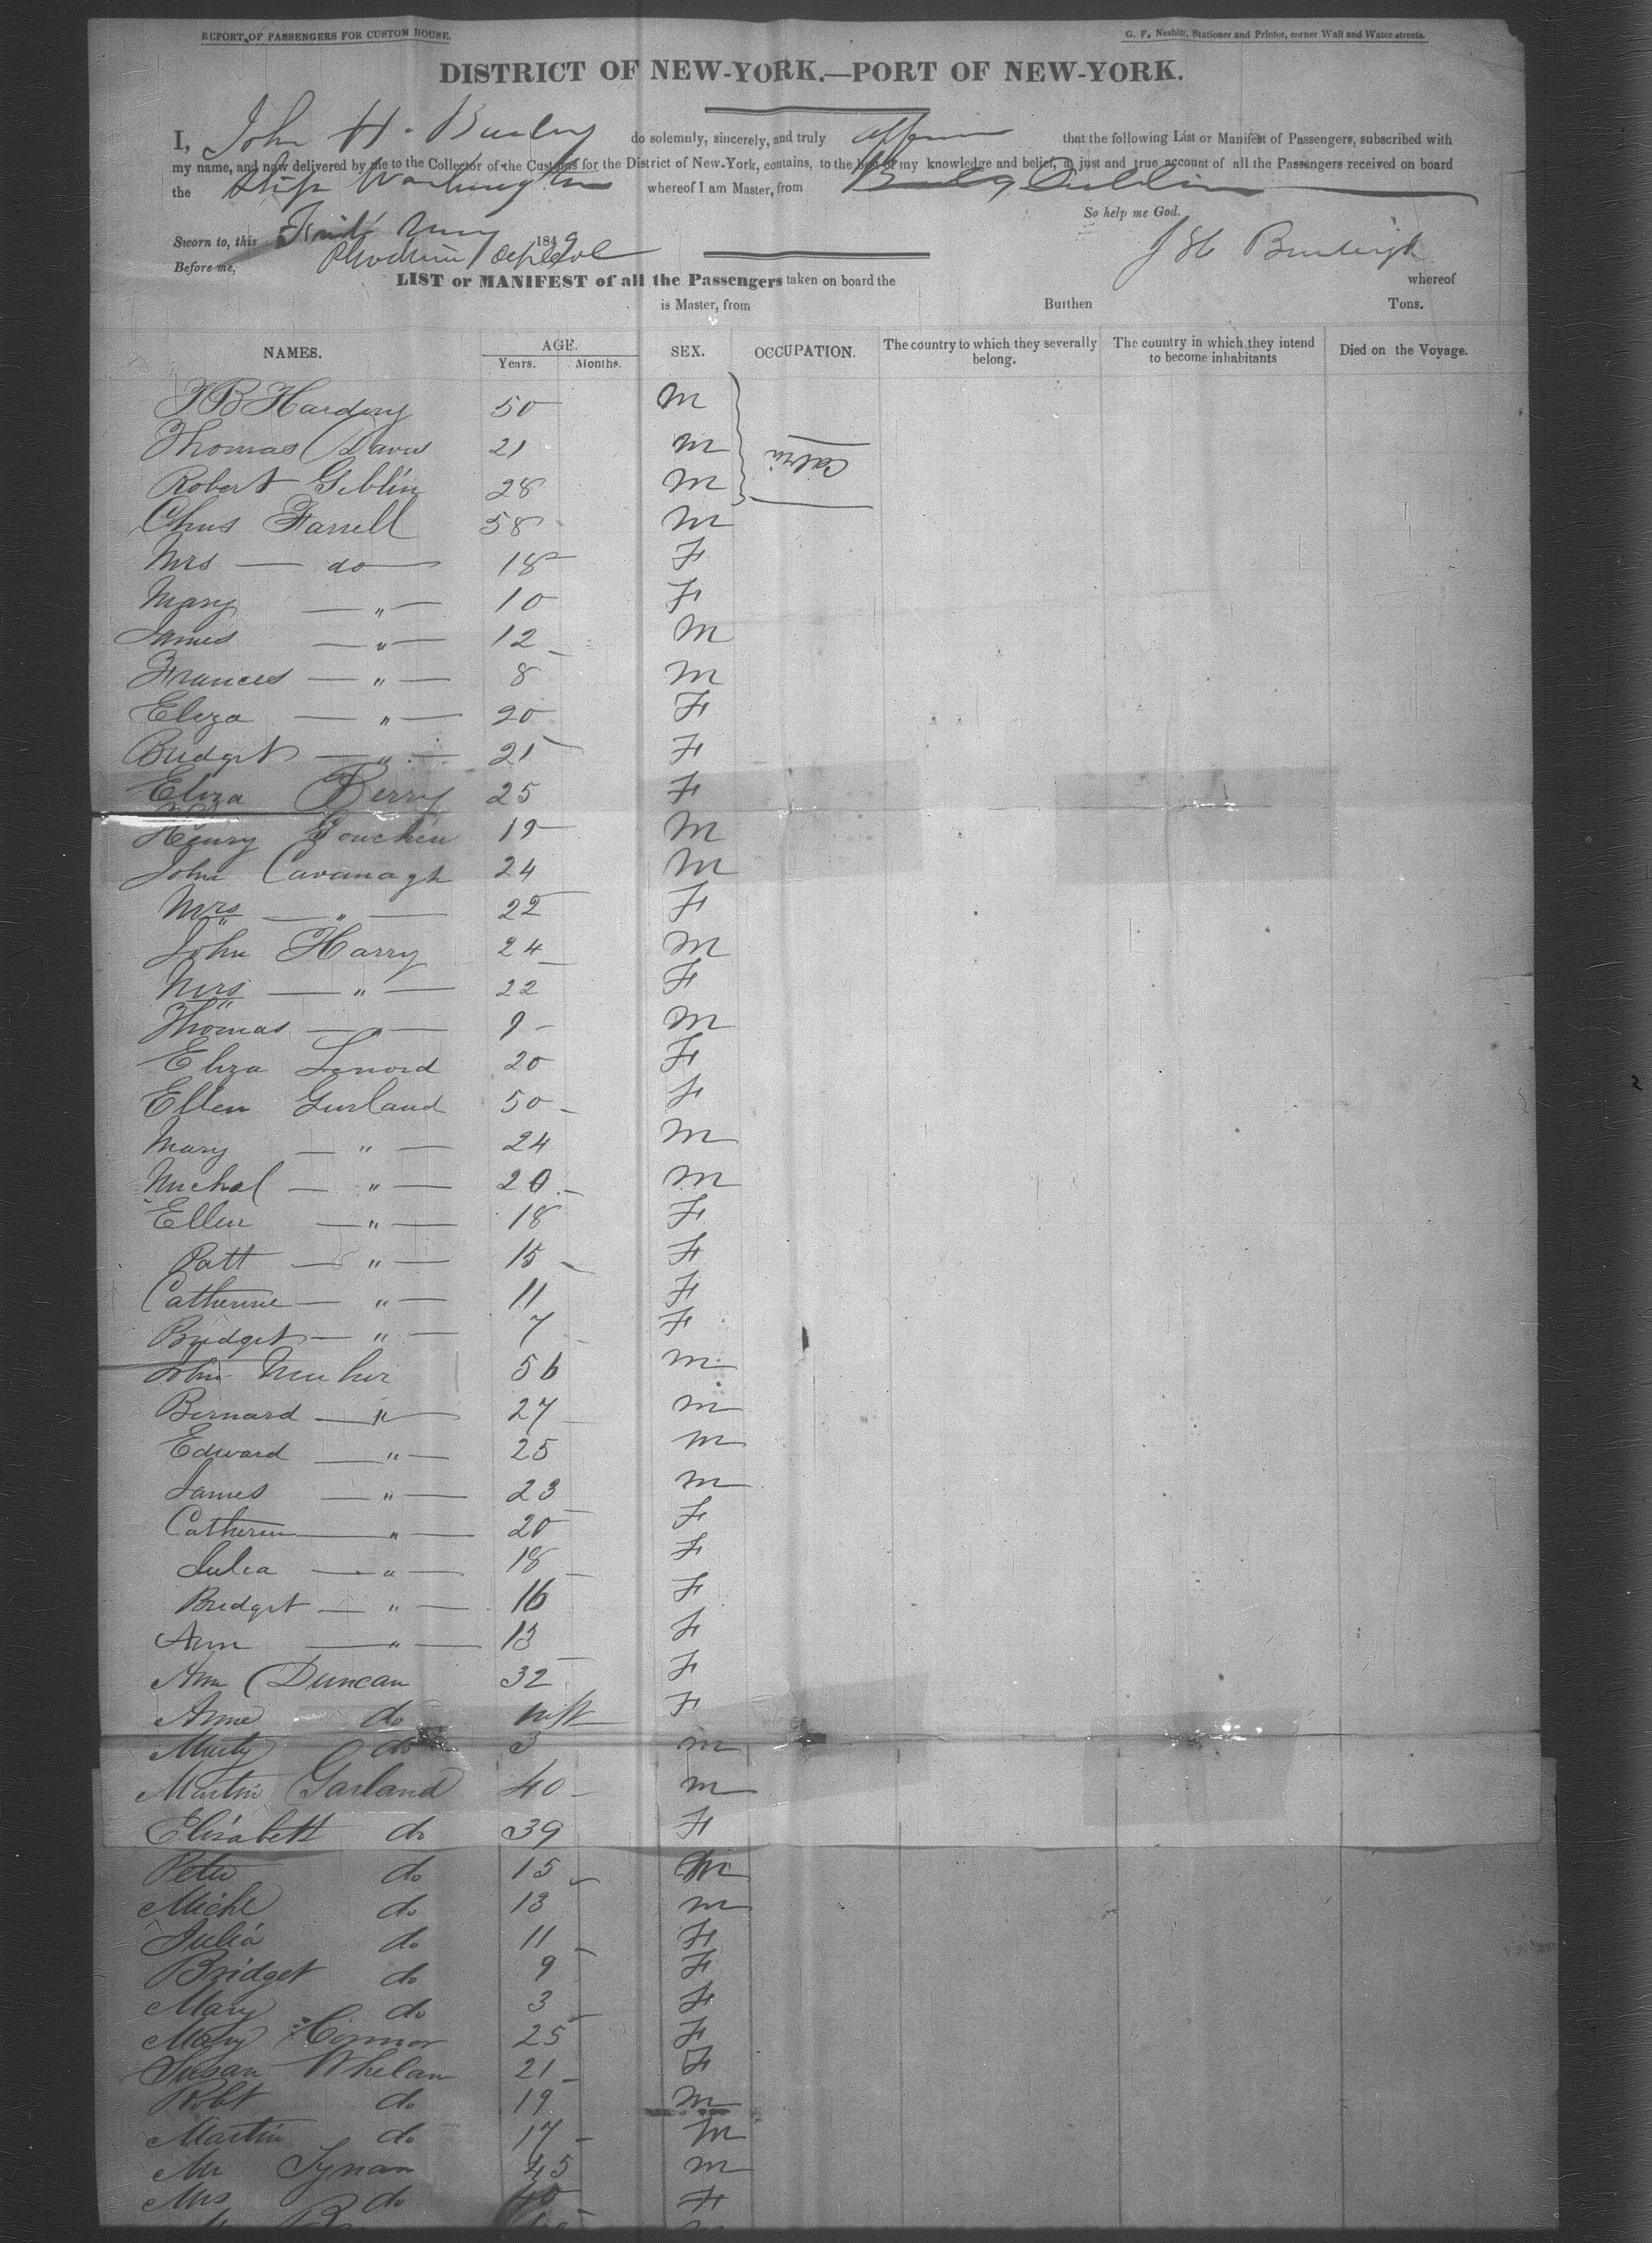 REPORT OF PASSENGERS FOR CUSTOM HOUSE.
G. F. Nesbitt, Stationer and Printer, corner Wall and Water streets.
DISTRICT OF NEW-YORK.—PORT OF NEW-YORK.
I, John H. do solemnly, sincerely, and truly affirm that the following List or Manifest of Passengers, subscribed with
my name, and now delivered by me to the Collector of the Customs for the District of New-York, contains, to the best of my knowledge and belief, a just and true account of all the Passengers received on board
the Ship Washington whereof I am Master, from Dublin
So help me God.
Sworn to, this 1849
J H Burleigh
Before me,
LIST or MANIFEST of all the Passengers taken on board the whereof
is Master, from Burthen Tons.
NAMES. AGE. Years. Months. SEX. OCCUPATION. The country to which they severally belong. The country in which they intend to become inhabitants Died on the Voyage.
B Harding 50 M
Thomas Davis 21 M Cabin
Robert Giblin 28 M
Chus Farrell 58 M
Mrs — do — 18 F
Mary — " — 10 F
James — " — 12 M
Frances — " — 8 M
Eliza — " — 20 F
Bridget — " — 21 F
Eliza Berry 25 F
Henry 19 M
John Cavanagh 24 M
Mrs — " — 22 F
John Harry 24 M
Mrs — " — 22 F
Thomas — " — 9 M
Eliza Lenord 20 F
Ellen Gurland 50 F
Mary — " — 24 M
Michal — " — 20 M
Ellen — " — 18 F
Patt — " — 15 F
Catherine — " — 11 F
Bridget — " — 7 F
John 56 M
Bernard — " — 27 M
Edward — " — 25 M
James — " — 23 M
Catherin — " — 20 F
Julia — " — 18 F
Bridget — " — 16 F
Ann — " — 13 F
Ann Duncan 32 F
Anne do inft F
do 3 M
Martin Garland 40 M
Elizabeth do 39 F
Peter do 15 M
Michl do 13 M
Julia do 11 F
Bridget do 9 F
Mary do 3 F
Mary Connor 25 F
Susan Whelan 21 F
Robt do 19 M
Martin do 17 M
Mr Tynan 45 M
Mrs do 40 F